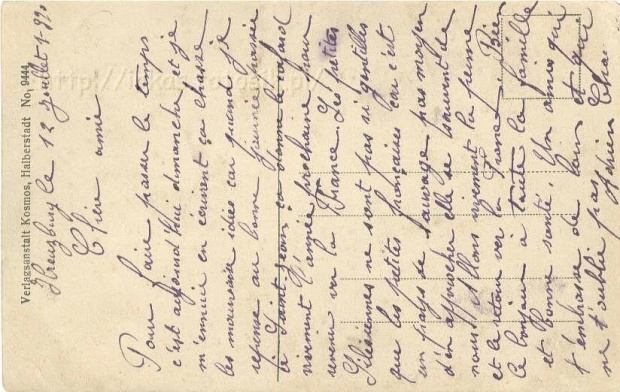 Verlagsanstalt Kosmos, Halberstadt No. 9444
Kreuzburg le 12 juillet
Cher ami
Pour faire passer le temps
c'est aujourd'hui dimanche et je
m'ennuie en écrivent ça chasse
les mauvaise idée car quand je
repense au bonne journée passée
à Saint Jean ça donne le cafard
vivement l'année prochaine pour
revenir voir la France. Les petites
Silésiennes ne sont pas si gentilles
que les petites françaises car c'est
un pays de sauvage pas moyen
d'en approcher elle se sauvent de
nous. Allons vivement la
et le retour ver la Bien
le bonjour à toute la famille
et bonne santé. Un ami qui
t'embrasse de leur et qui
ne t'oublie pas Adrien